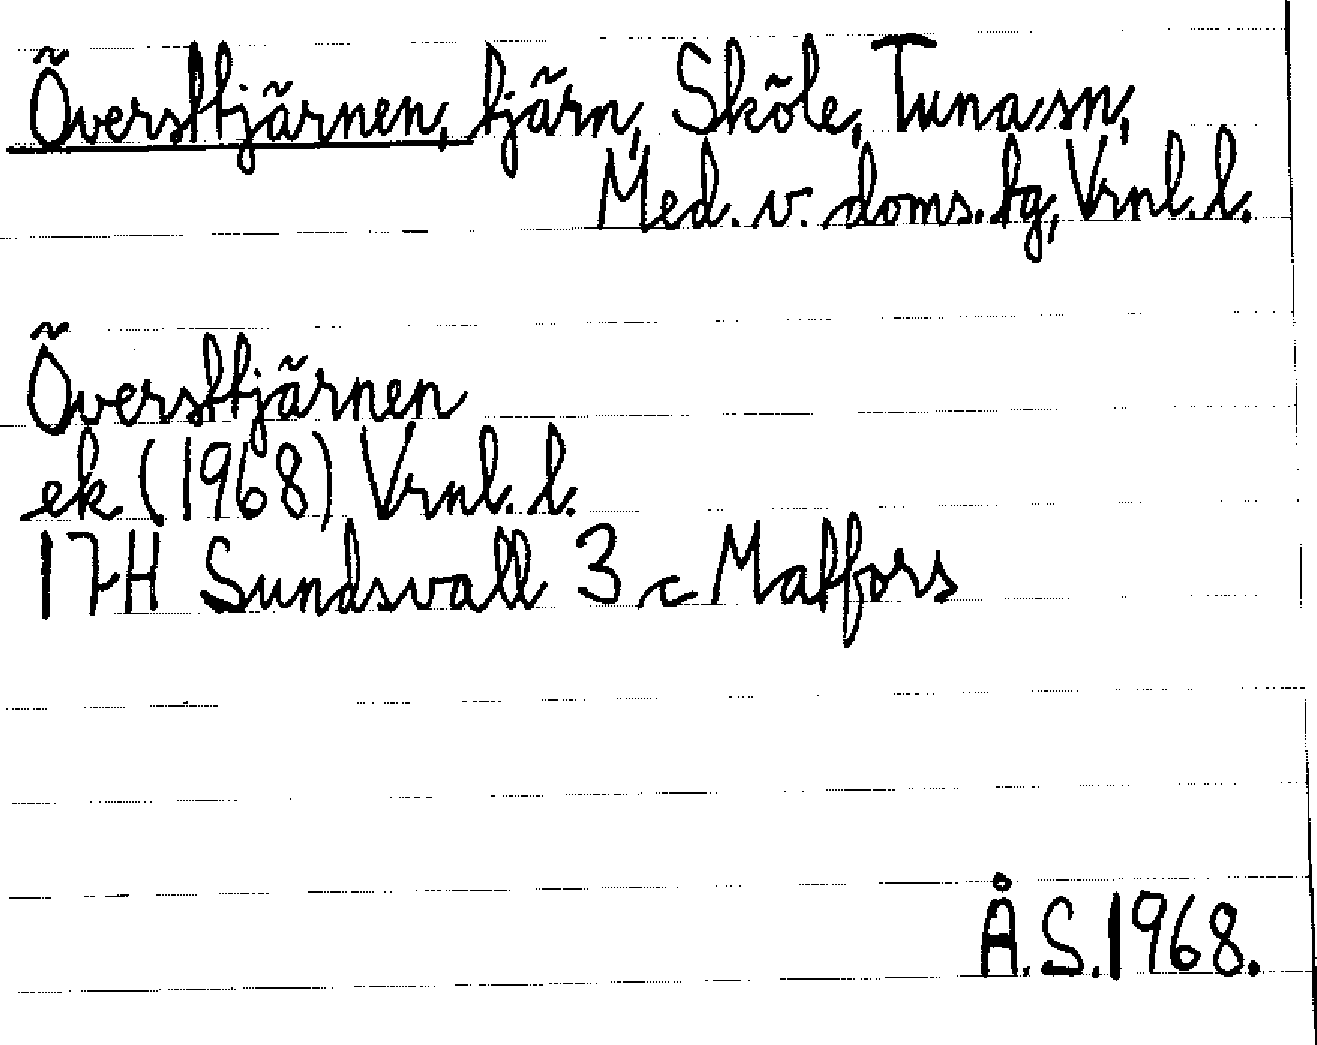 Översttjärnen, tjärn, Sköle, Tuna sn,
Med. v. doms. tg, Vrnl. l.
Översttjärnen
ek (1968) Vrnl. l.
17H Sundsvall 3 c Matfors
Å.S. 1968.